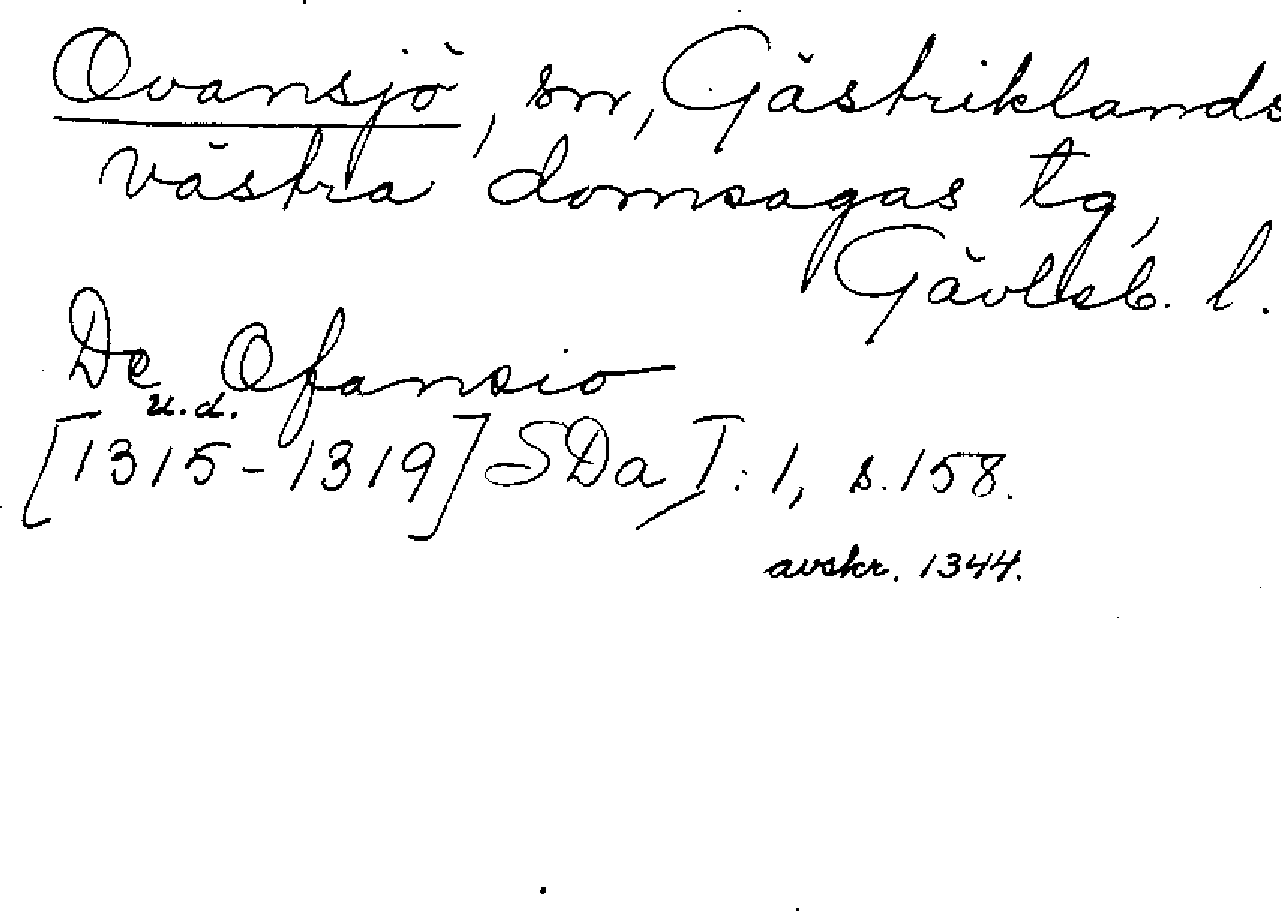 Ovansjö, sn, Gästriklands
västra domsagas tg,
Gävleb. l.
De Ofansio
u.d.
[1315-1319] SDa I:1, s.158.
avskr. 1344.